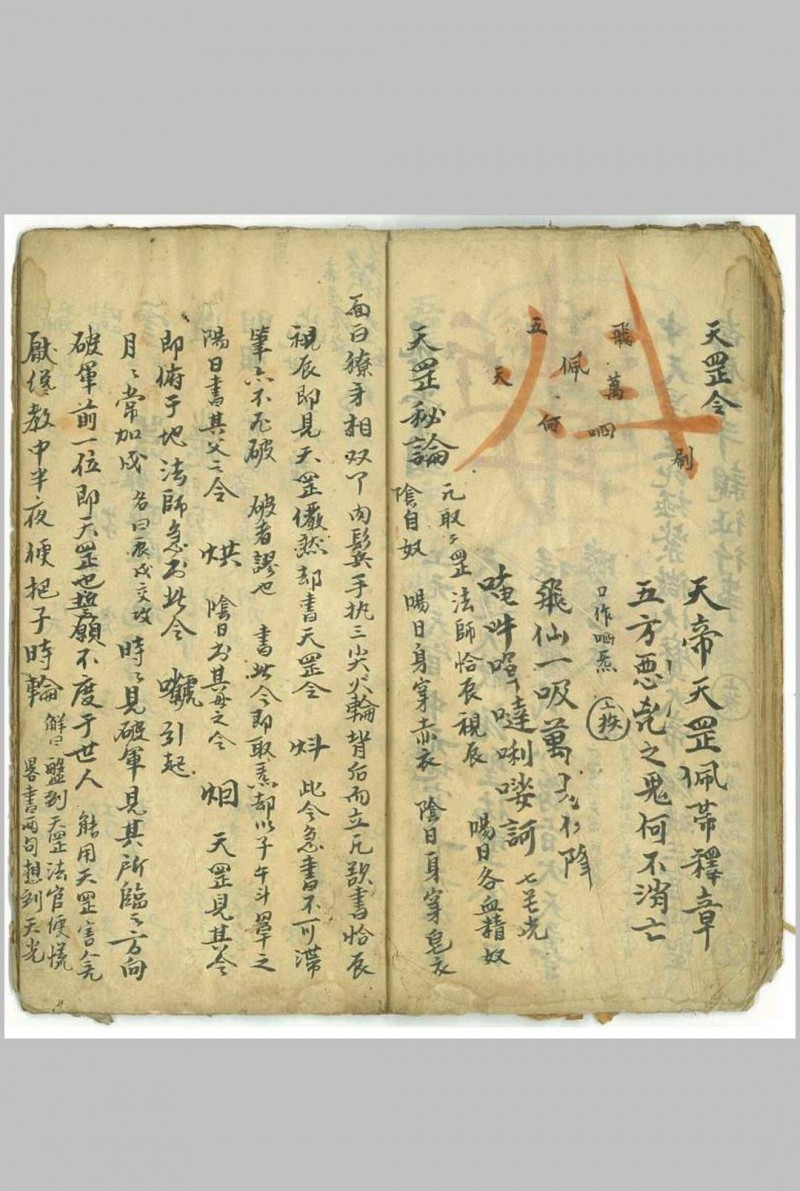 天罡令
五 飛 佩 萬 天 何 哂 刷
天帝天罡佩帶釋章
五方惡之鬼何不消亡
口作哂炁
飛仙一吸萬降
唵吽噠唎娑訶 七茫光
陽日各血精奴
凡取罡法師恰辰視辰
天罡秘論 陰自奴 陽日身穿赤衣 陰日身穿皂衣
面白獠牙相双丫肉髻手执三尖火輪背后而立凡書恰辰
視辰即見天罡儼然却書天罡令 此令急書不可滯
筆亦不冗破 破者謬也 書此令即取炁却以子午斗罩之
陽日書其父之令 烘 陰日書其母之令 烟 天罡見其令
即俯于地法師急書此令 引起
月月常加戌 名曰辰戌交攻 時時見破軍見其所臨之方向
破軍前一位即天罡也誓願不度于世人 能用天罡害人
厭僐教中半夜便把子時輪 解曰盤到天罡法官便慌
畧書兩句想到天光